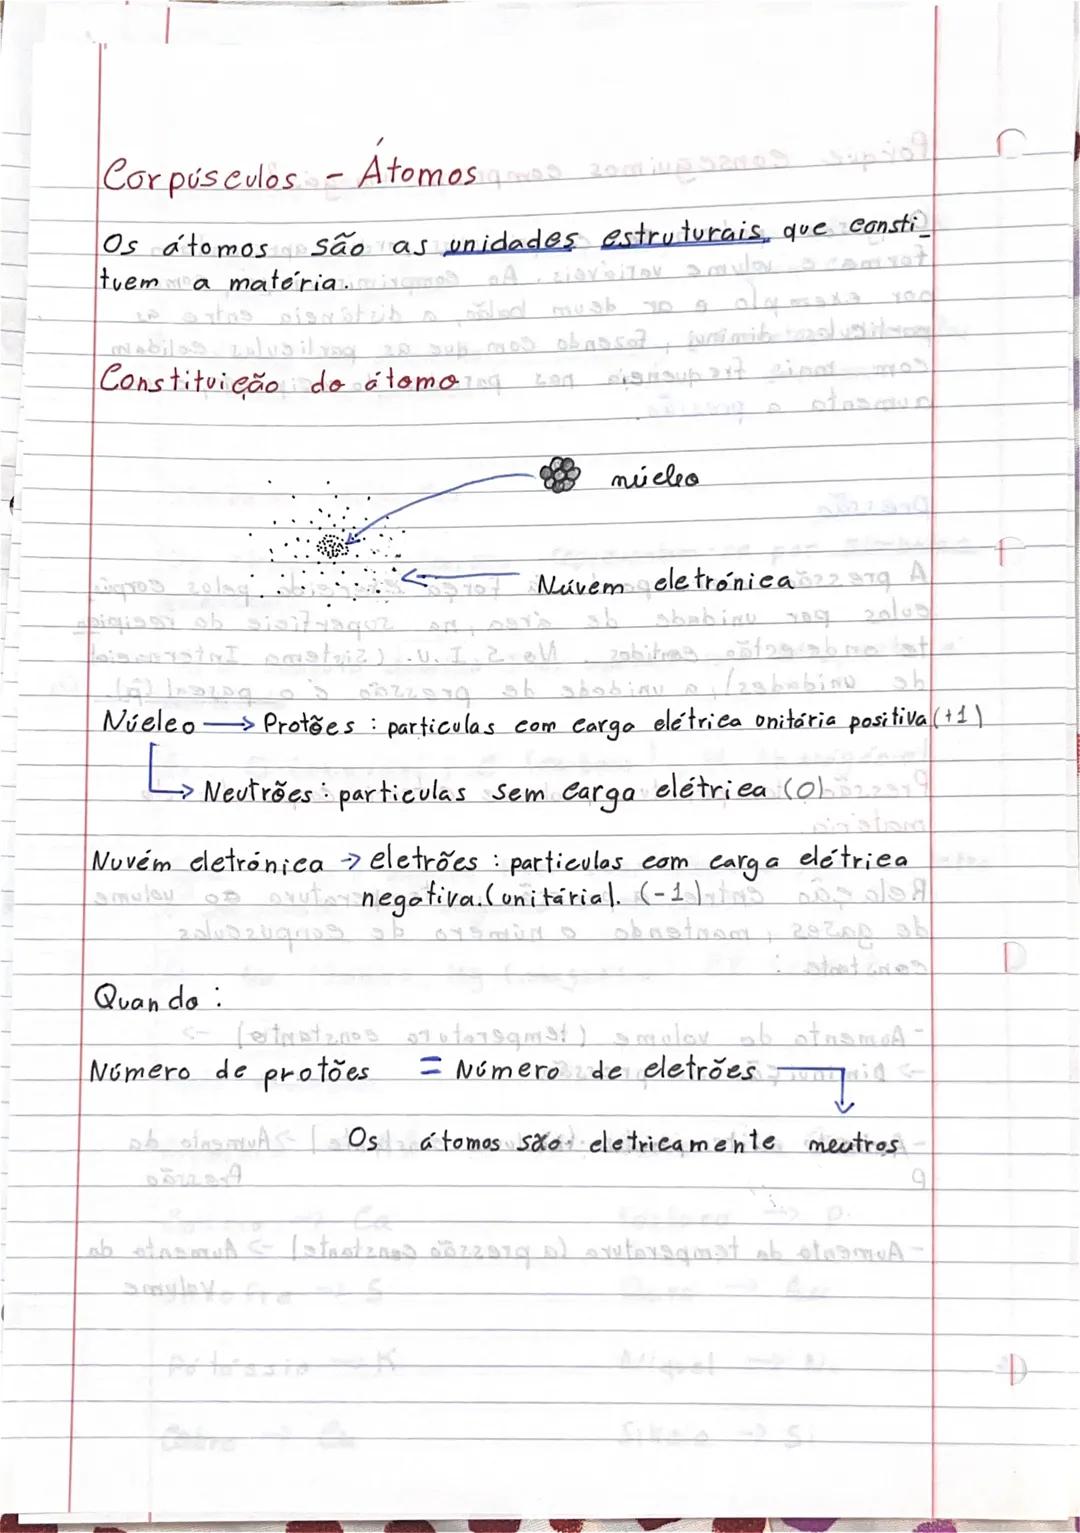 Corpúsculos - Átomos
Os átomos são as unidades estruturais que consti_
tuem a matéria.
Constituição do átomo
núcleo
Núvem eletrónica
Núcleo → Protões : particulas com carga elétrica unitária positiva (+1)
→ Neutrões : particulas sem carga elétrica (0)
Nuvém eletrónica → eletrões : particulas com carga elétrica
negativa (unitária). (-1)
Quando :
Número de protões = Número de eletrões
Os átomos são eletricamente neutros